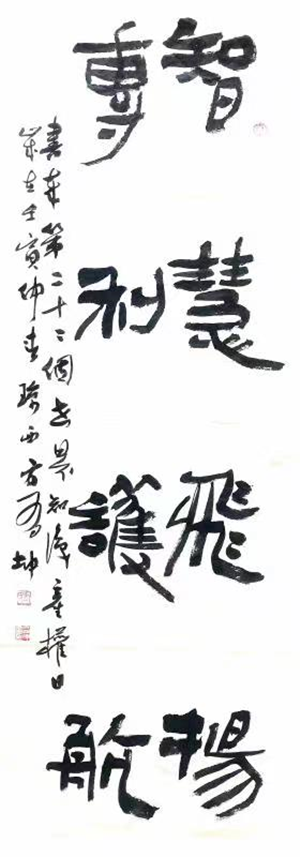 智慧飛揚
專利護航
書奉第二十二個世界知識產權日
歲在壬寅仲春西方坤